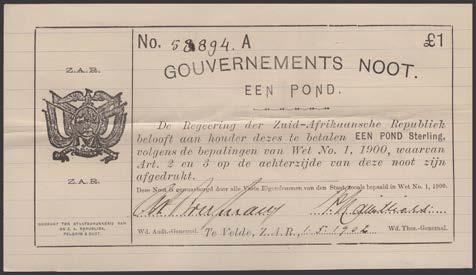 No. 58894. A £1
GOUVERNEMENTS NOOT.
EEN POND.
Z.A.R.
De Regeering der Zuid-Afrikaansche Republiek
belooft aan houder dezes te betalen EEN POND Sterling,
volgens de bepalingen van Wet No. 1, 1900, waarvan
Art. 2 en 3 op de achterzijde van deze noot zijn
afgedrukt.
Z.A.R.
Deze Noot is gewaarborgd door alle Vaste Eigendommen van den Staat zooals bepaald in Wet No. 1, 1900.
GEDRUKT TER STAATSDRUKKERIJ VAN
DE Z. A. REPUBLIEK,
PELGRIM'S RUST.
Wd. Audt.-Generaal. Te Velde, Z.A.R., 1.5.1902 Wd. Thes.-Generaal.